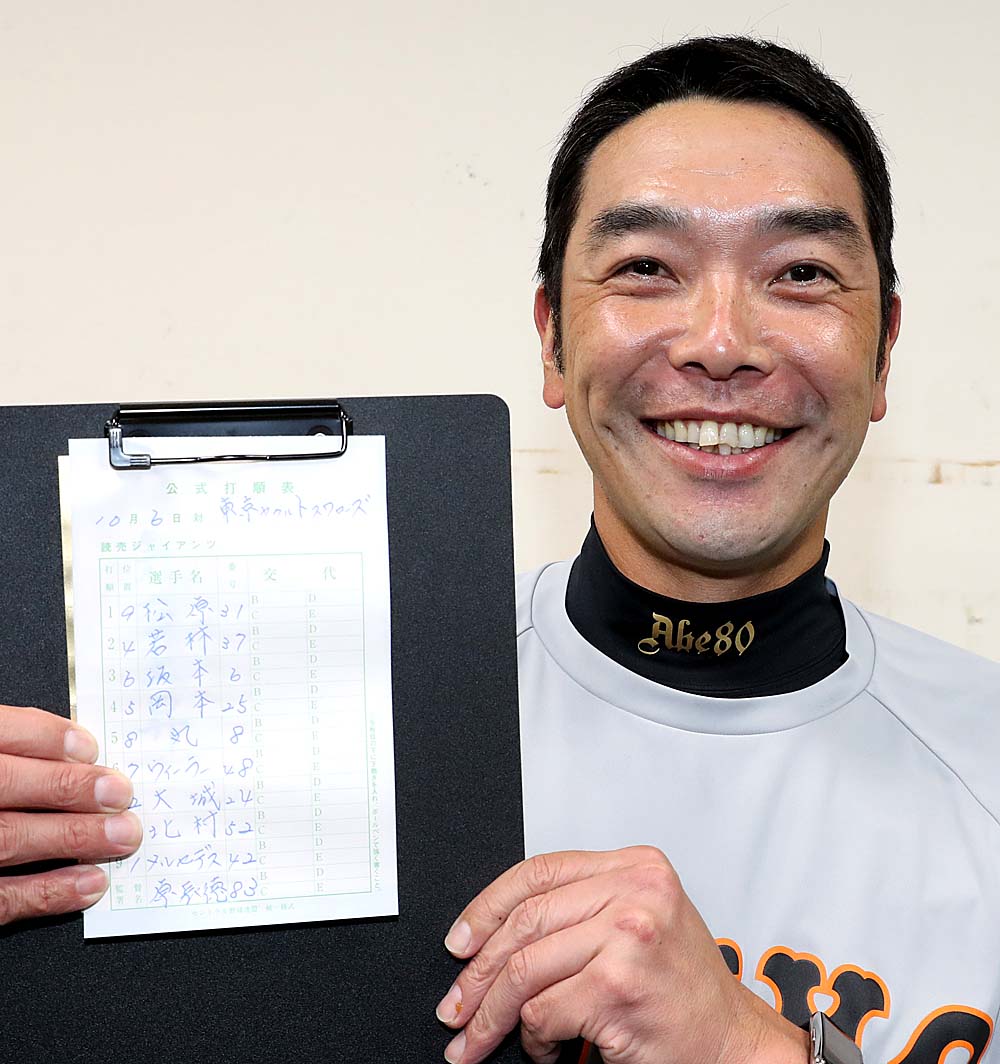 公式打順表
10月6日対 東京ヤクルトスワローズ
読売ジャイアンツ
打順 位置 選手名 番号 交代
1 9 松原 31 B C D E
2 4 若林 37 B C D E
3 6 坂本 6 B C D E
4 5 岡本 25 B C D E
5 8 丸 8 B C D E
7 ウィーラー 48 B C D E
2 大城 24 B C D E
北村 52 B C D E
9 1 メルセデス 42 B C D E
監督署名 原辰徳 83 C E
Abe80